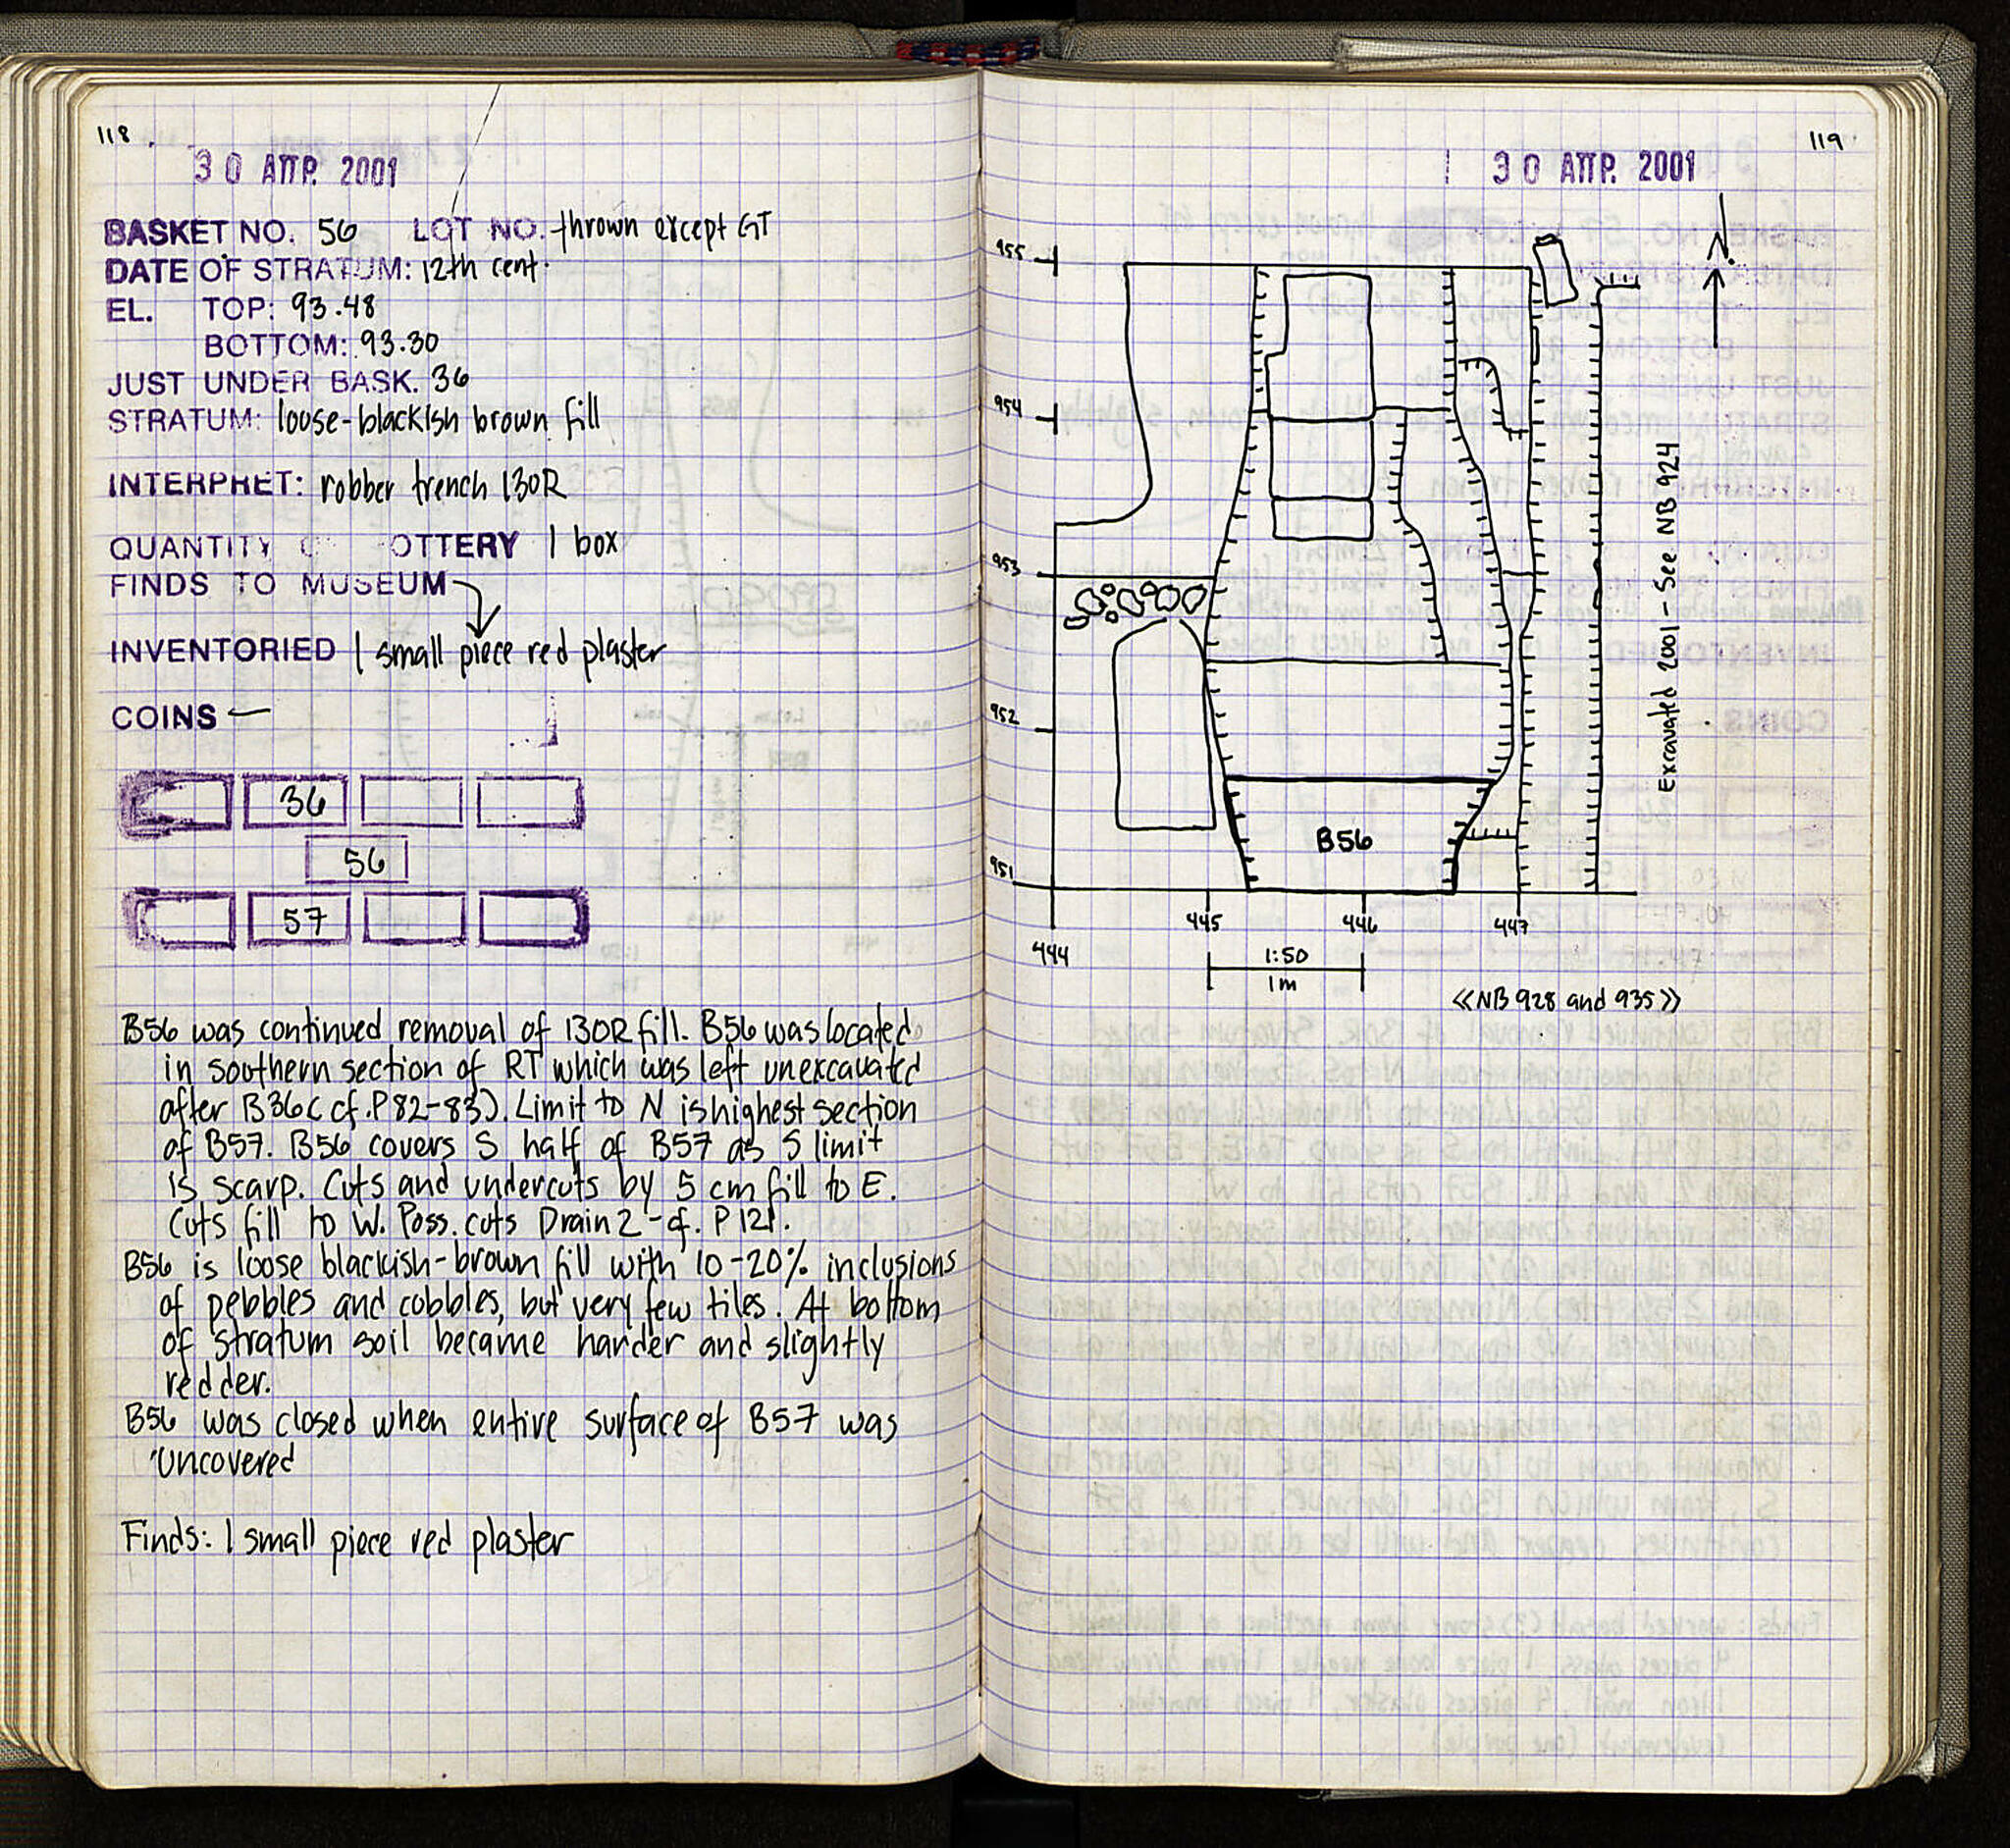 118
30 ΑΠΡ. 2001
BASKET NO. 56 LOT NO. thrown except GT
DATE OF STRATUM: 12th cent.
EL. TOP: 93.48
BOTTOM: 93.30
JUST UNDER BASK. 36
STRATUM: loose-blackish brown fill
INTERPRET: robber trench 130R
QUANTITY OTTERY 1 box
FINDS TO MUSEUM
INVENTORIED 1 small piece red plaster
COINS —
36
56
57
B56 was continued removal of 130R fill. B56 was located
in southern section of RT which was left unexcavated
after B36 (cf. P82-83). Limit to N is highest section
of B57. B56 covers S half of B57 as S limit
is scarp. Cuts and undercuts by 5 cm fill to E.
Cuts fill to W. Poss. cuts Drain 2 - cf. P 121.
B56 is loose blackish-brown fill with 10-20% inclusions
of pebbles and cobbles, but very few tiles. At bottom
of stratum soil became harder and slightly
redder.
B56 was closed when entire surface of B57 was
uncovered
Finds: 1 small piece red plaster
119
30 ΑΠΡ. 2001
N.
955
954
953
952
951
B56
Excavated 2001 - See NB 924
444
445
446
447
1:50
1m
«NB 928 and 935»